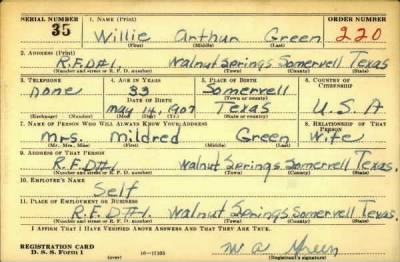 SERIAL NUMBER 1. NAME (Print) ORDER NUMBER
35 Willie Arthur Green 220
(First) (Middle) (Last)
2. ADDRESS (Print)
R.F.D#1. Walnut Springs Somervell Texas
(Number and street or R. F. D. number) (Town) (County) (State)
3. TELEPHONE 4. AGE IN YEARS 5. PLACE OF BIRTH 6. COUNTRY OF CITIZENSHIP
none 33 Somervell
DATE OF BIRTH (Town or county)
May 14, 1907 Texas U.S.A
(Exchange) (Number) (Mo.) (Day) (Yr.) (State or country)
7. NAME OF PERSON WHO WILL ALWAYS KNOW YOUR ADDRESS 8. RELATIONSHIP OF THAT PERSON
Mrs. Mildred Green Wife
(Mr., Mrs., Miss) (First) (Middle) (Last)
9. ADDRESS OF THAT PERSON
R.F.D#1. Walnut Springs Somervell Texas.
(Number and street or R. F. D. number) (Town) (County) (State)
10. EMPLOYER'S NAME
Self
11. PLACE OF EMPLOYMENT OR BUSINESS
R.F.D#1. Walnut Springs Somervell Texas.
(Number and street or R. F. D. number) (Town) (County) (State)
I AFFIRM THAT I HAVE VERIFIED ABOVE ANSWERS AND THAT THEY ARE TRUE.
REGISTRATION CARD
D. S. S. Form 1 (over) 16—17105 W A Green
(Registrant's signature)